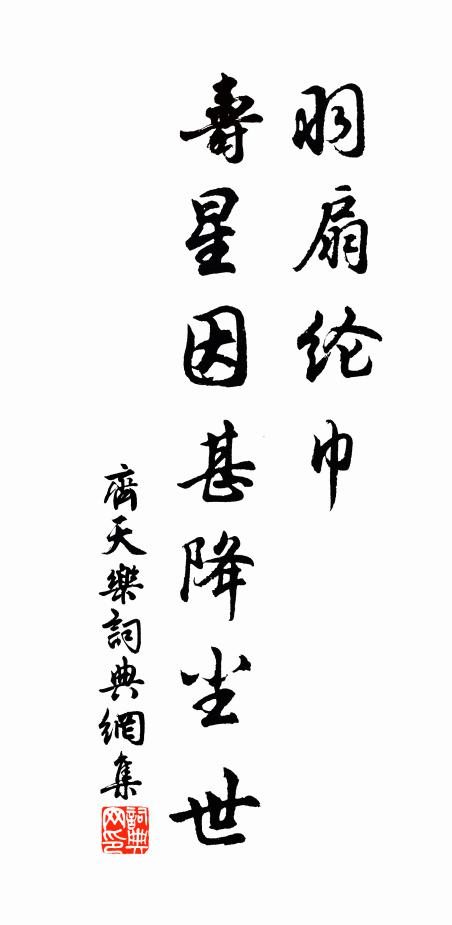 羽扇纶巾
壽星因甚降尘世
齊天樂詞典網集
詞典网印